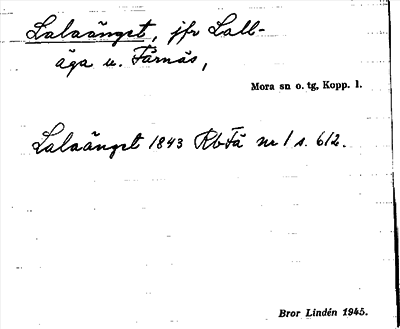 Lalaänget, jfr Lall-
äga u. Färnäs,
Mora sn o. tg, Kopp. l.
Lalaänget 1843 RbFä nr 1 s. 612.
Bror Lindén 1945.